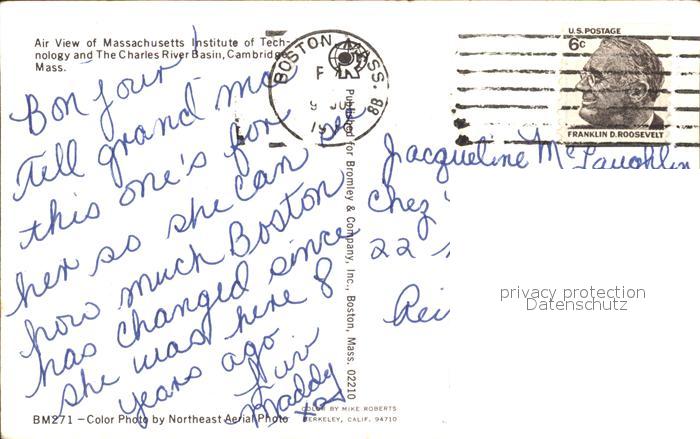 Air View of Massachusetts Institute of Tech-
nology and The Charles River Basin, Cambridge
Mass.
Bon jour!
Tell grand ma
this one's for
her so she can see
how much Boston
has changed since
she was here 8
years ago
Luv
Daddy
xo
BM271 - Color Photo by Northeast Aerial Photo
Published for Bromley & Company, Inc., Boston, Mass. 02210
COLOR BY MIKE ROBERTS
BERKELEY, CALIF. 94710
BOSTON, MASS. 88
9
U.S. POSTAGE
6c
FRANKLIN D. ROOSEVELT
Jacqueline McLaughlin
Chez
22
privacy protection
Datenschutz